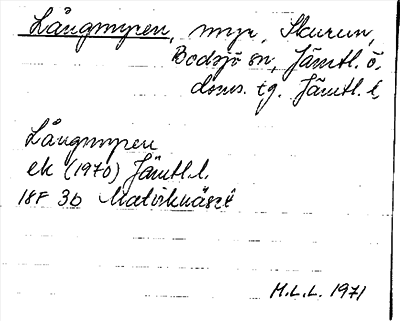 Långmyren, myr, Skurun,
Bodsjö sn, Jämtl. ö.
doms. tg. Jämtl. l
Långmyren
ek (1970) Jämtl. l.
18F 3b Mälviknäset
M.L.L. 1971